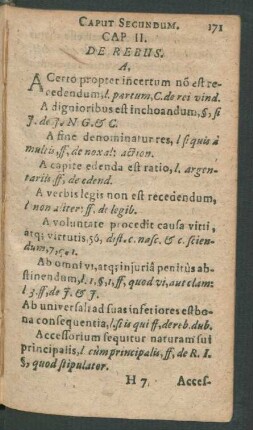 CAPUT SECUNDUM. 171
CAP II.
DE REBUS.
A.
ACerto propter incertum nõ est re-
cedendum, l. partum, C. de rei vind.
A dignioribus est inchoandum, §, si
J. de J. N G. & C.
A fine denominatur res, l si quis à
multis, ff, de noxal; action.
A capite edenda est ratio, l. argen-
tariis ff, de edend.
A verbis legis non est recedendum,
l non aliter: ff. de legib.
A voluntate procedit causa vitii,
atq; virtutis, 56, dist. c. nasc. & c. scien-
dum,
Ab omni vi, atq; injuriâ penitùs ab-
stinendum, l. 1, §, 1, ff, quod vi, aut clam:
l 3. ff, de J. & J.
Ab universali ad suas inferiores est bo-
na consequentia, l. si is qui ff, de reb. dub.
Accessorium sequitur naturam sui
principalis, l cùm principalis, ff, de R. I.
§, quod stipulater.
H 7. Acces-